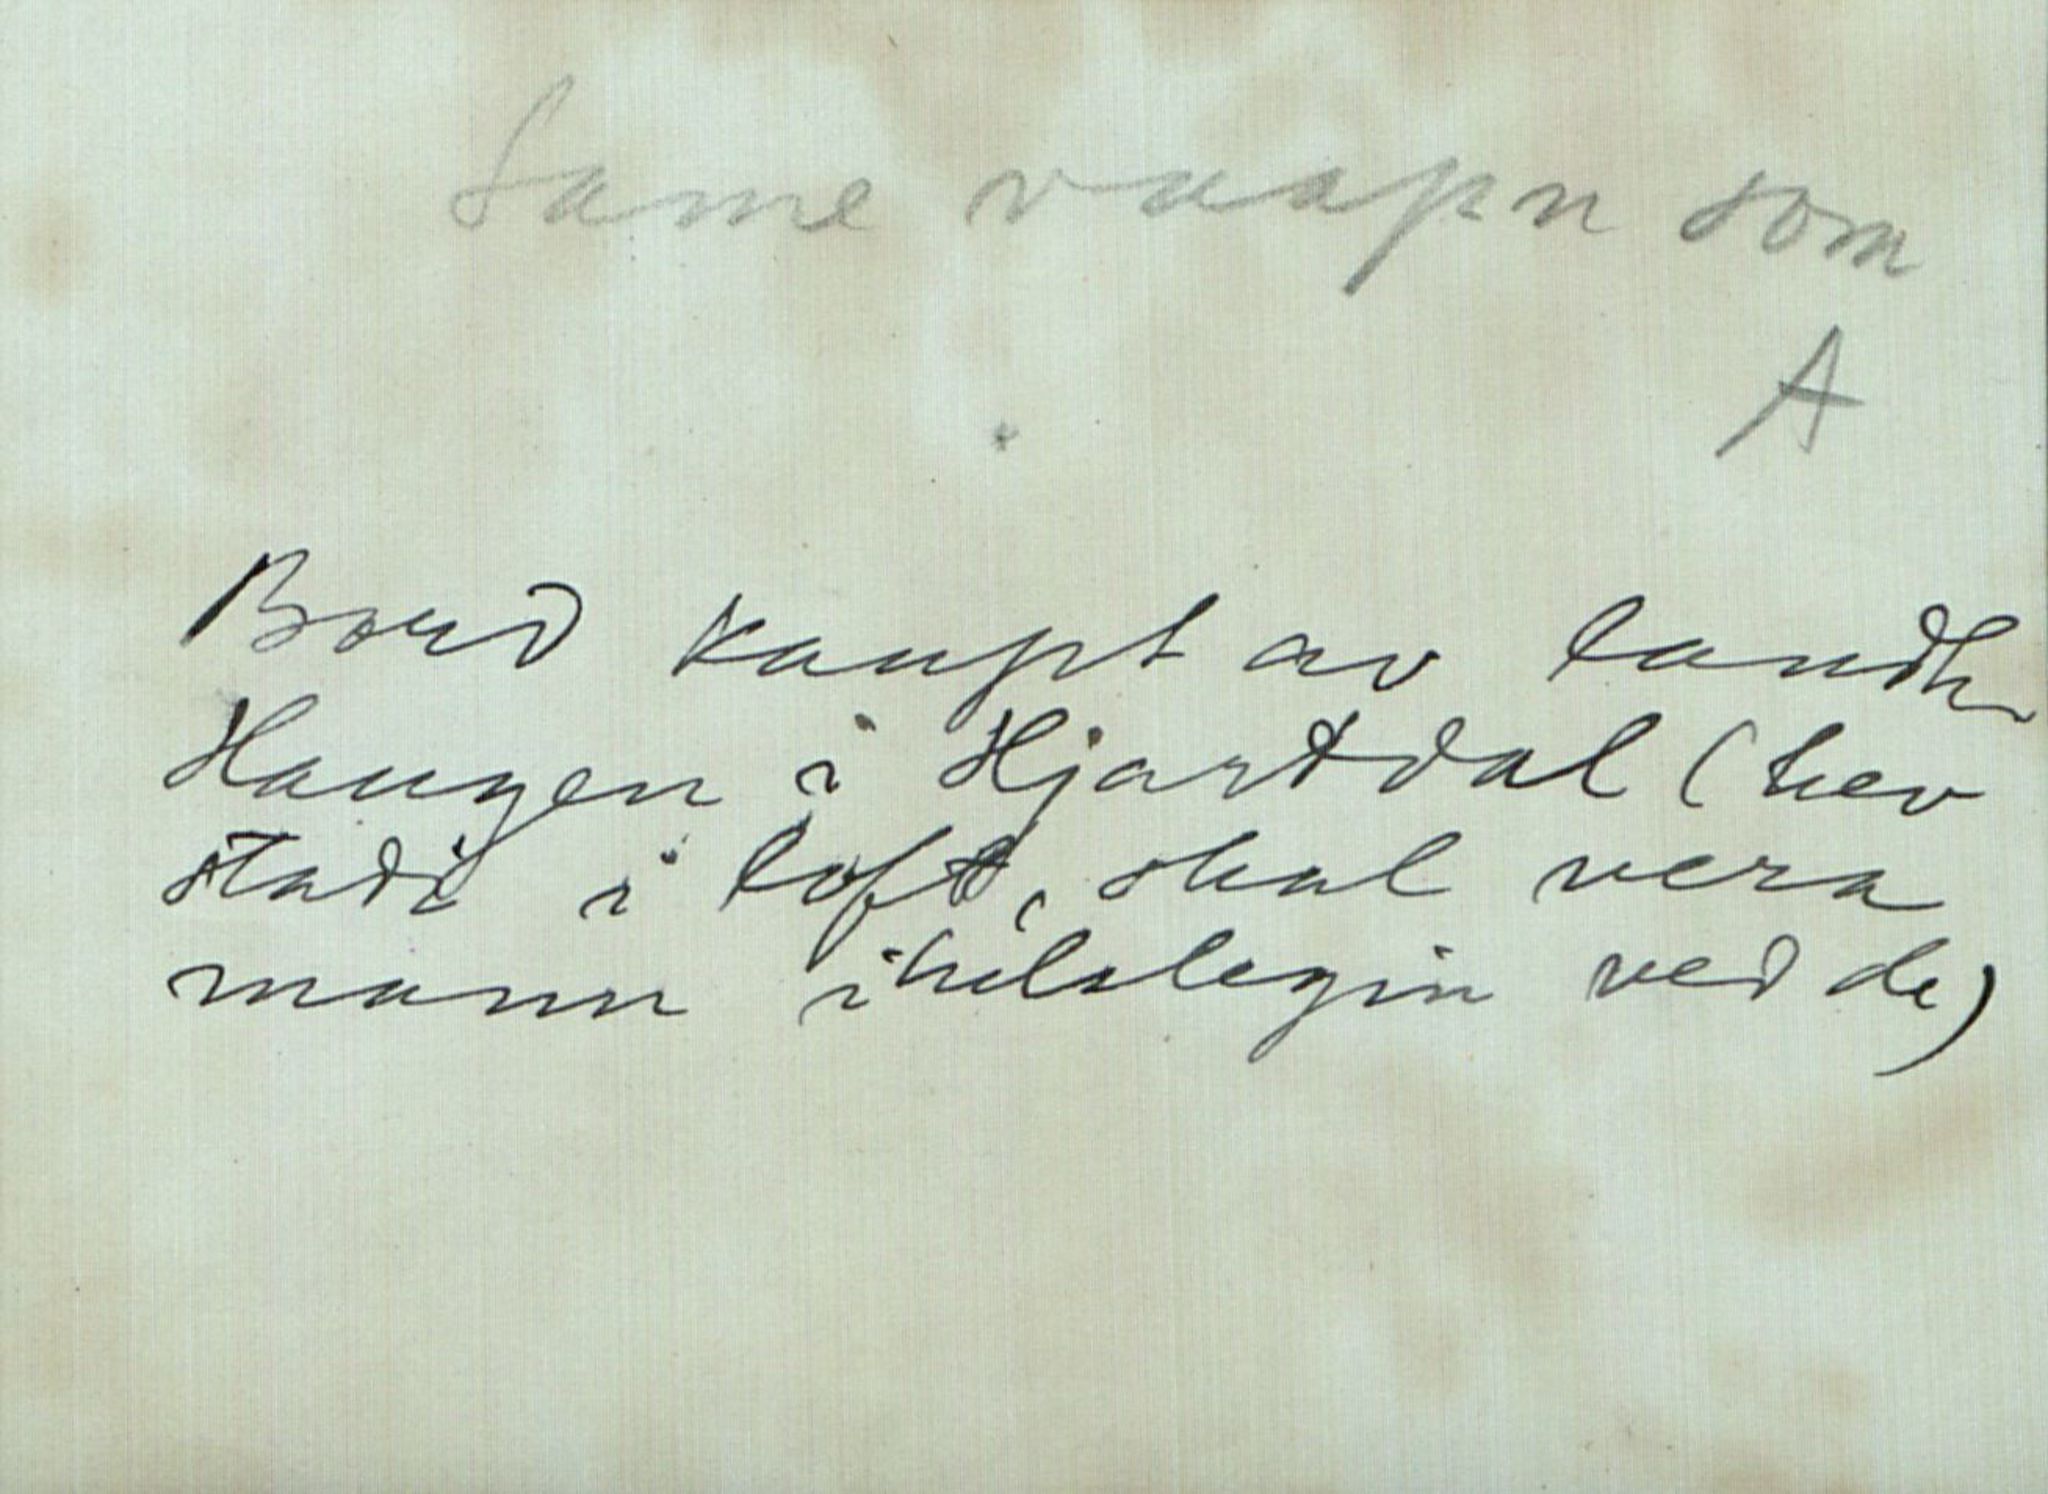 Same vaapn som
A
Bord kaupt av landh.
Haugen i Hjartdal (hev
stadi i loft, skal vera
mann ihelslegin ved de)